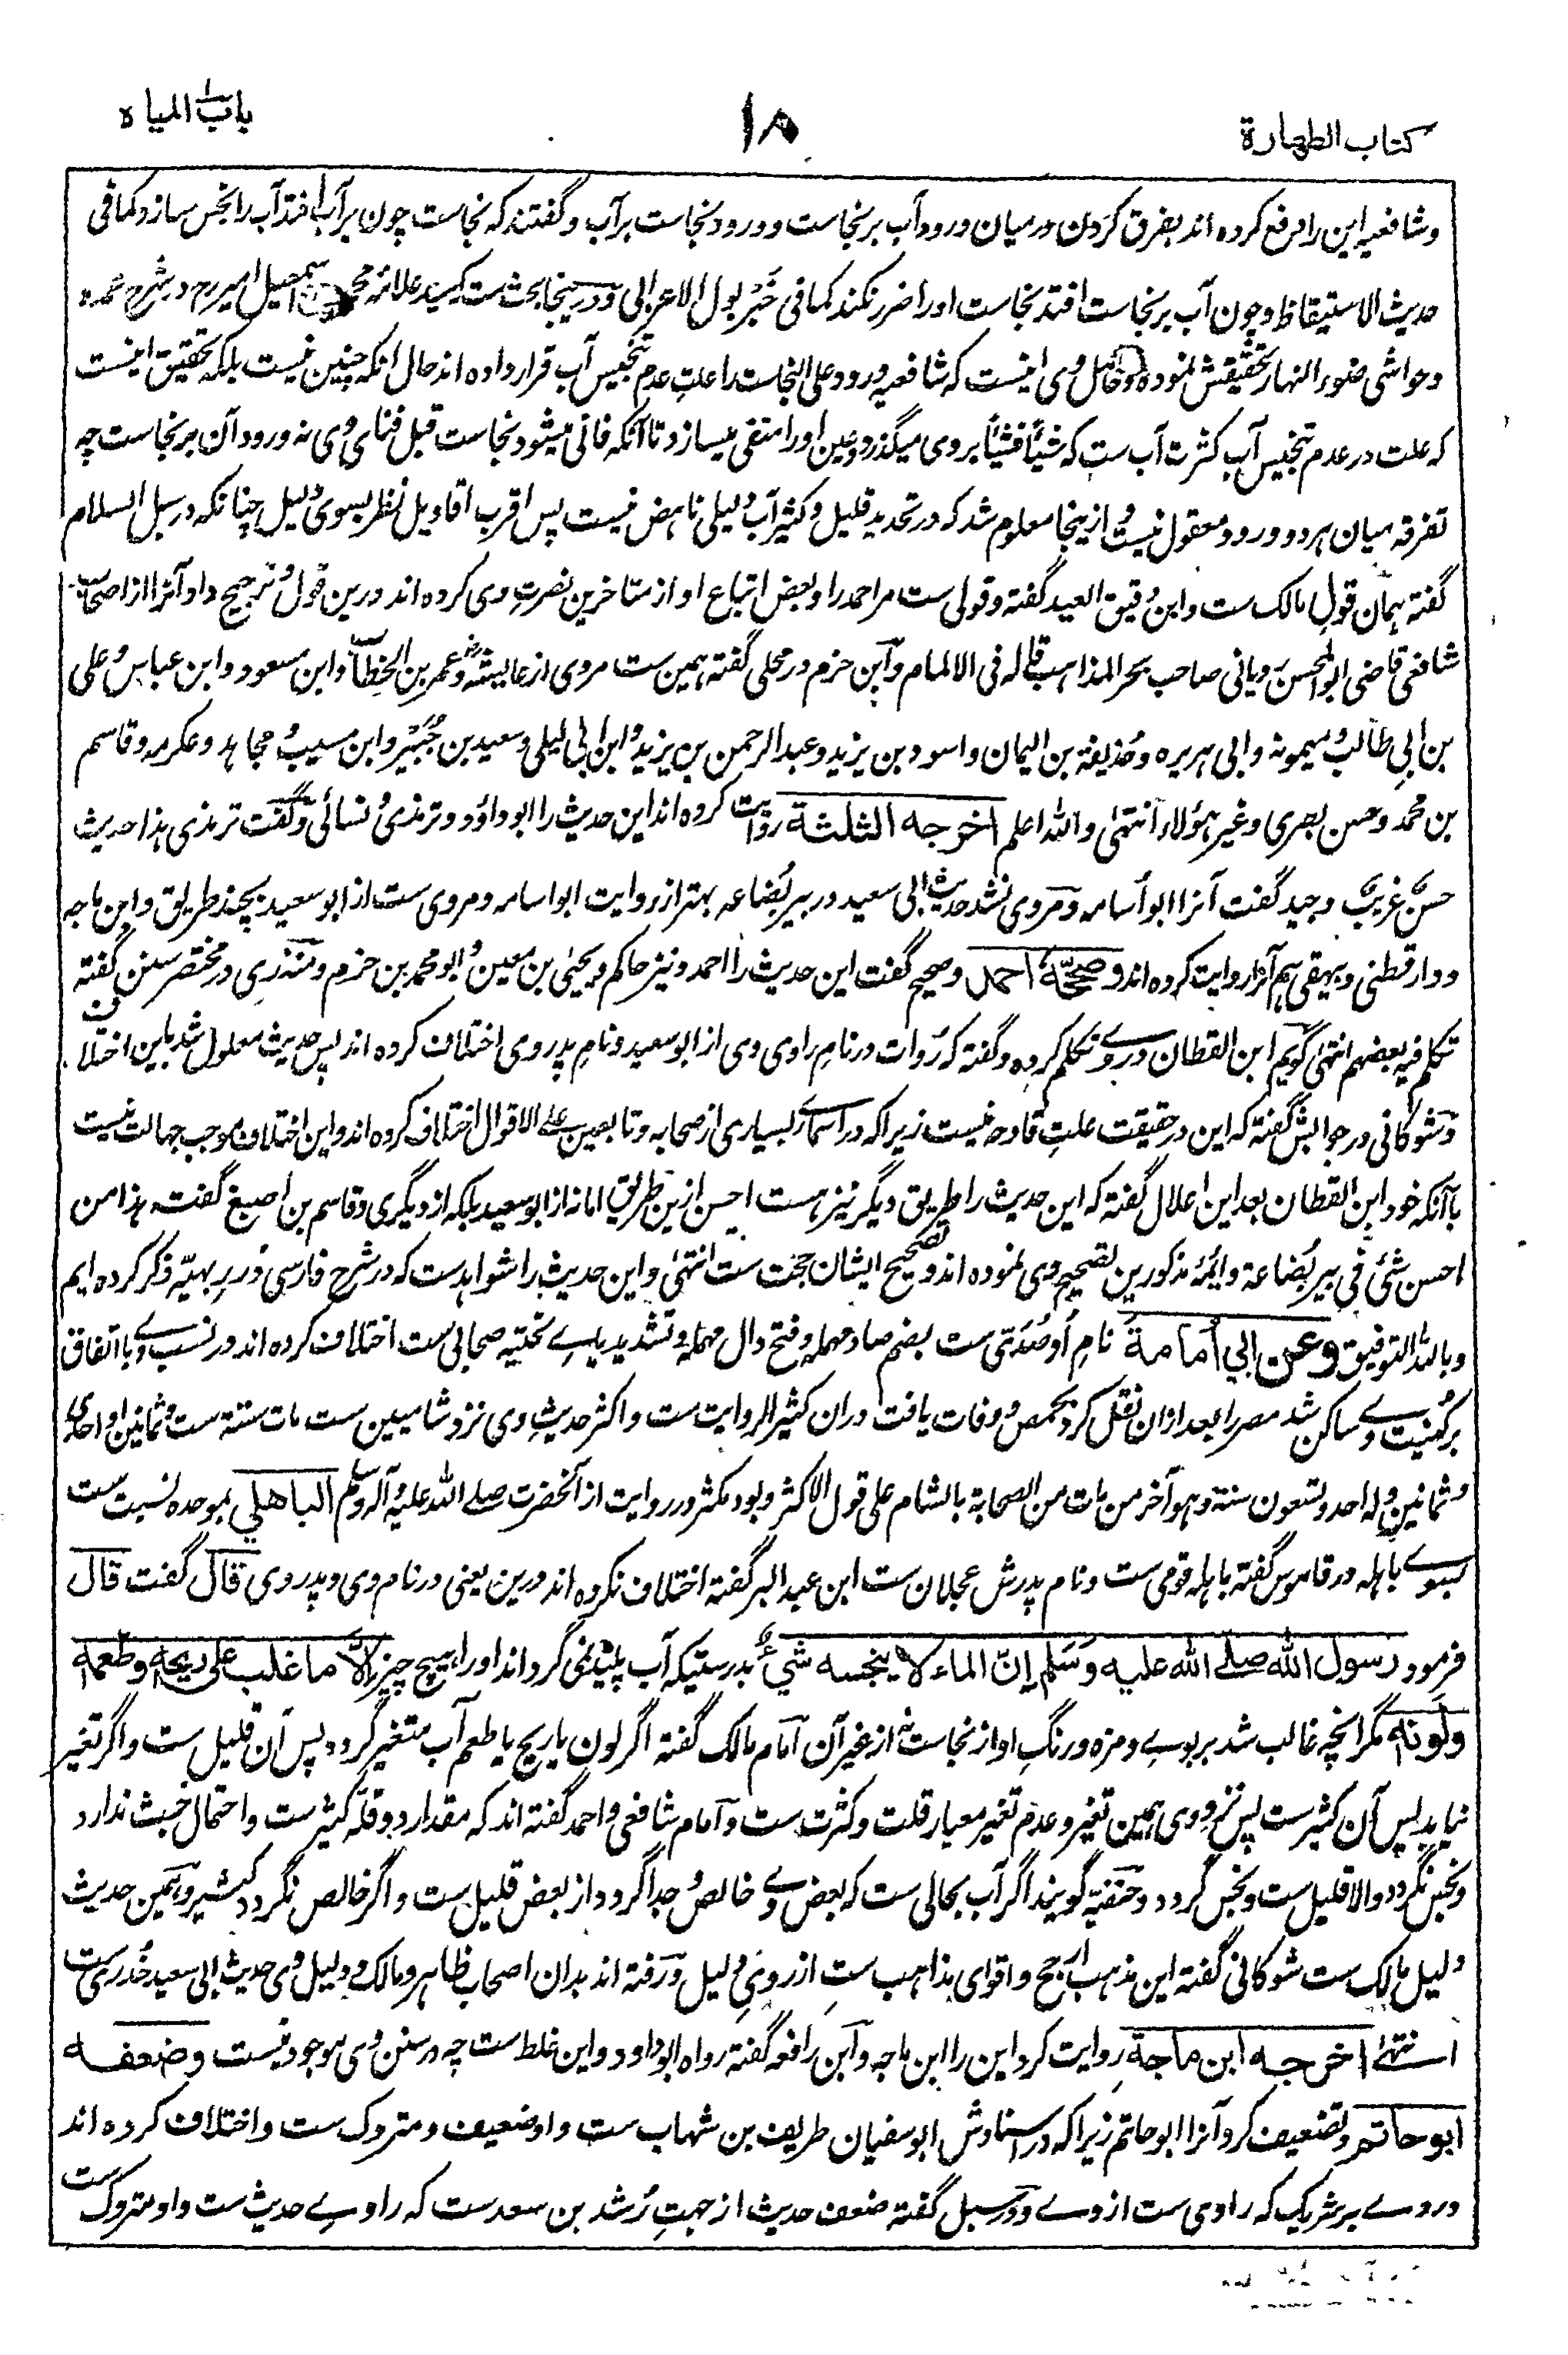 كتاب الطهارة
١٨
باب المياه
وشافعیه این را رفع کرده اند بفرق کردن در میان ورود آب بر نجاست و ورود نجاست بر آب و گفتند که نجاست چون بر آب افتد آب را نجس سازد کما فی
حدیث الاستیقاظ و چون آب بر نجاست افتد نجاست او را ضرر نکند کما فی خبر بول الاعرابی و درینجا بحث ست که سید علامه محمد بن اسمعیل امیر رح در شرح عمده
و حواشی ضوء النهار تحقیقش نموده و حاصل وی اینست که شافعیه ورود علی النجاست را علت عدم تنجیس آب قرار داده اند حال آنکه چنین نیست بلکه تحقیق اینست
که علت در عدم تنجیس آب کثرت آب ست که شیئا فشیئا بر وی میگذرد و عین او را منتفی میسازد تا آنکه فانی میشود نجاست قبل فنای وی نه ورود آن بر نجاست چه
تفرقه میان هر دو ورود معقول نیست و ازینجا معلوم شد که در تحدید قلیل و کثیر آب دلیلی ناهض نیست پس اقرب اقاویل نظر بسوی دلیل چنانکه در سبل السلام
گفته همان قول مالک ست و ابن دقیق العید گفته و قولی ست مر احمد را و بعض اتباع او از متاخرین نصرت وی کرده اند و درین قول و ترجیح داد آنرا از اصحاب
شافعی قاضی ابو الحسن رویانی صاحب بحر المذاهب قاله فی الالمام و ابن حزم در محلی گفته همین ست مروی از عایشه و عمر بن الخطاب و ابن مسعود و ابن عباس و علی
بن ابی طالب و میمونه و ابی هریره و حذیفة بن الیمان و اسود بن یزید و عبد الرحمن بن یزید و ابن ابی لیلی و سعید بن جبیر و ابن مسیب و مجاهد و عکرمه و قاسم
بن محمد و حسن بصری و غیر هؤلاء انتهی و الله اعلم اخرجه الثلثة روایت کرده اند این حدیث را ابو داؤد و ترمذی و نسائی و گفت ترمذی هذا حدیث
حسن غریب و جید گفت آنرا ابو اسامه و مروی نشد حدیث ابی سعید در بیر بضاعه بهتر از روایت ابو اسامه و مروی ست از ابو سعید بچند طریق و ابن ماجه
و دارقطنی و بیهقی هم آنرا روایت کرده اند و صححه احمد و صحیح گفت این حدیث را احمد و نیز حاکم و یحیی بن معین و ابو محمد بن حزم و منذری در مختصر سنن گفته
تکلم فیه بعضهم انتهی گویم ابن القطان در وے تکلم کرده و گفته که روات در نام راوی وی از ابو سعید و نام پدر وی اختلاف کرده اند پس حدیث معلول شد باین اختلاف
و شوکانی در جوابش گفته که این در حقیقت علت قادحه نیست زیرا که در اسماے بسیاری از صحابه و تابعین علی الاقوال اختلاف کرده اند و این اختلاف موجب جهالت نیست
با آنکه خود ابن القطان بعد این اعلال گفته که این حدیث را طریق دیگر نیز هست احسن ازین طریق اما نه از ابو سعید بلکه از دیگری و قاسم بن اصبغ گفت هذا من
احسن شئ فی بیر بضاعة و ایمه مذکورین تصحیح وی نموده اند و تصحیح ایشان حجت ست انتهی و این حدیث را شواهد ست که در شرح فارسی درر بهیه ذکر کرده ایم
و بالله التوفیق وعن ابي أمامة نام او صدی ست بضم صاد مهمله و فتح دال مهمله و تشدید یاے تحتیه صحابی ست اختلاف کرده اند در نسب وے با اتفاق
بر کنیت وے ساکن شد مصر را بعد ازان نقل کرد بحمص و وفات یافت دران کثیر الروایت ست و اکثر حدیث وی نزد شامیین ست مات سنة ست و ثمانین او احدی
و ثمانین و له احد و تسعون سنة و هو آخر من مات من الصحابة بالشام علی قول الاکثر و بود مکثر در روایت از آنحضرت صلے الله علیه و آله وسلم الباهلي بموحده نسبت ست
بسوے باهله در قاموس گفته باهله قومی ست و نام پدرش عجلان ست ابن عبد البر گفته اختلاف نکرده اند درین یعنی در نام وی و پدر وی قال گفت قال
فرمود رسول الله صلے الله عليه وسلم إن الماء لا ينجسه شيء بدرستیکه آب پلید نمی گرداند او را هیچ چیز إلا ما غلب على ريحه وطعمه
ولونه مگر آنچه غالب شد بر بوے و مزه و رنگ او از نجاست نه از غیر آن امام مالک گفته اگر لون یا ریح یا طعم آب متغیر گردد پس آن قلیل ست و اگر تغیر
نیابد پس آن کثیر ست پس نزد وی همین تغیر و عدم تغیر معیار قلت و کثرت ست و امام شافعی و احمد گفته اند که مقدار دو قله کثیر ست و احتمال خبث ندارد
و نجس نگردد و الا قلیل ست و نجس گردد و حنفیه گویند اگر آب بحالی ست که بعض وے خالص و جدا گردد از بعض قلیل ست و اگر خالص نگردد کثیر و همین حدیث
دلیل مالک ست شوکانی گفته این مذهب ارجح و اقوای مذاهب ست از روی دلیل و رفته اند بدان اصحاب ظاهر و مالک و دلیل وی حدیث ابی سعید خدری ست
انتهی اخرجه ابن ماجة روایت کرد این را ابن ماجه و ابن رافعه گفته رواه ابو داود و این غلط ست چه در سنن وی موجود نیست وضعفه
ابو حاتم و تضعیف کرد آنرا ابو حاتم زیرا که در اسنادش ابو سفیان طریف بن شهاب ست و او ضعیف و متروک ست و اختلاف کرده اند
در وے بر شریک که راوی ست از وے و در سبل گفته ضعف حدیث از جهت رشد بن سعد ست که راوے حدیث ست و او متروک ست